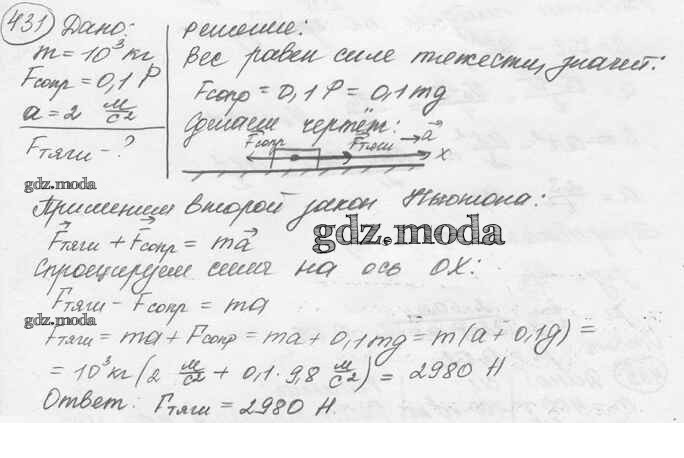 431 Дано:
m = 10³ кг
Fсопр = 0,1 P
a = 2 м/с²
Fтяги - ?
gdz.moda
Решение:
Вес равен силе тяжести, значит:
Fсопр = 0,1 P = 0,1 mg
Сделаем чертёж:
Fсопр Fтяги a X
Применим второй закон Ньютона:
Fтяги + Fсопр = ma
gdz.moda
Спроецируем силы на ось OX:
Fтяги - Fсопр = ma
gdz.moda
Fтяги = ma + Fсопр = ma + 0,1 mg = m(a + 0,1g) =
= 10³ кг (2 м/с² + 0,1 · 9,8 м/с²) = 2980 Н
Ответ: Fтяги = 2980 Н.